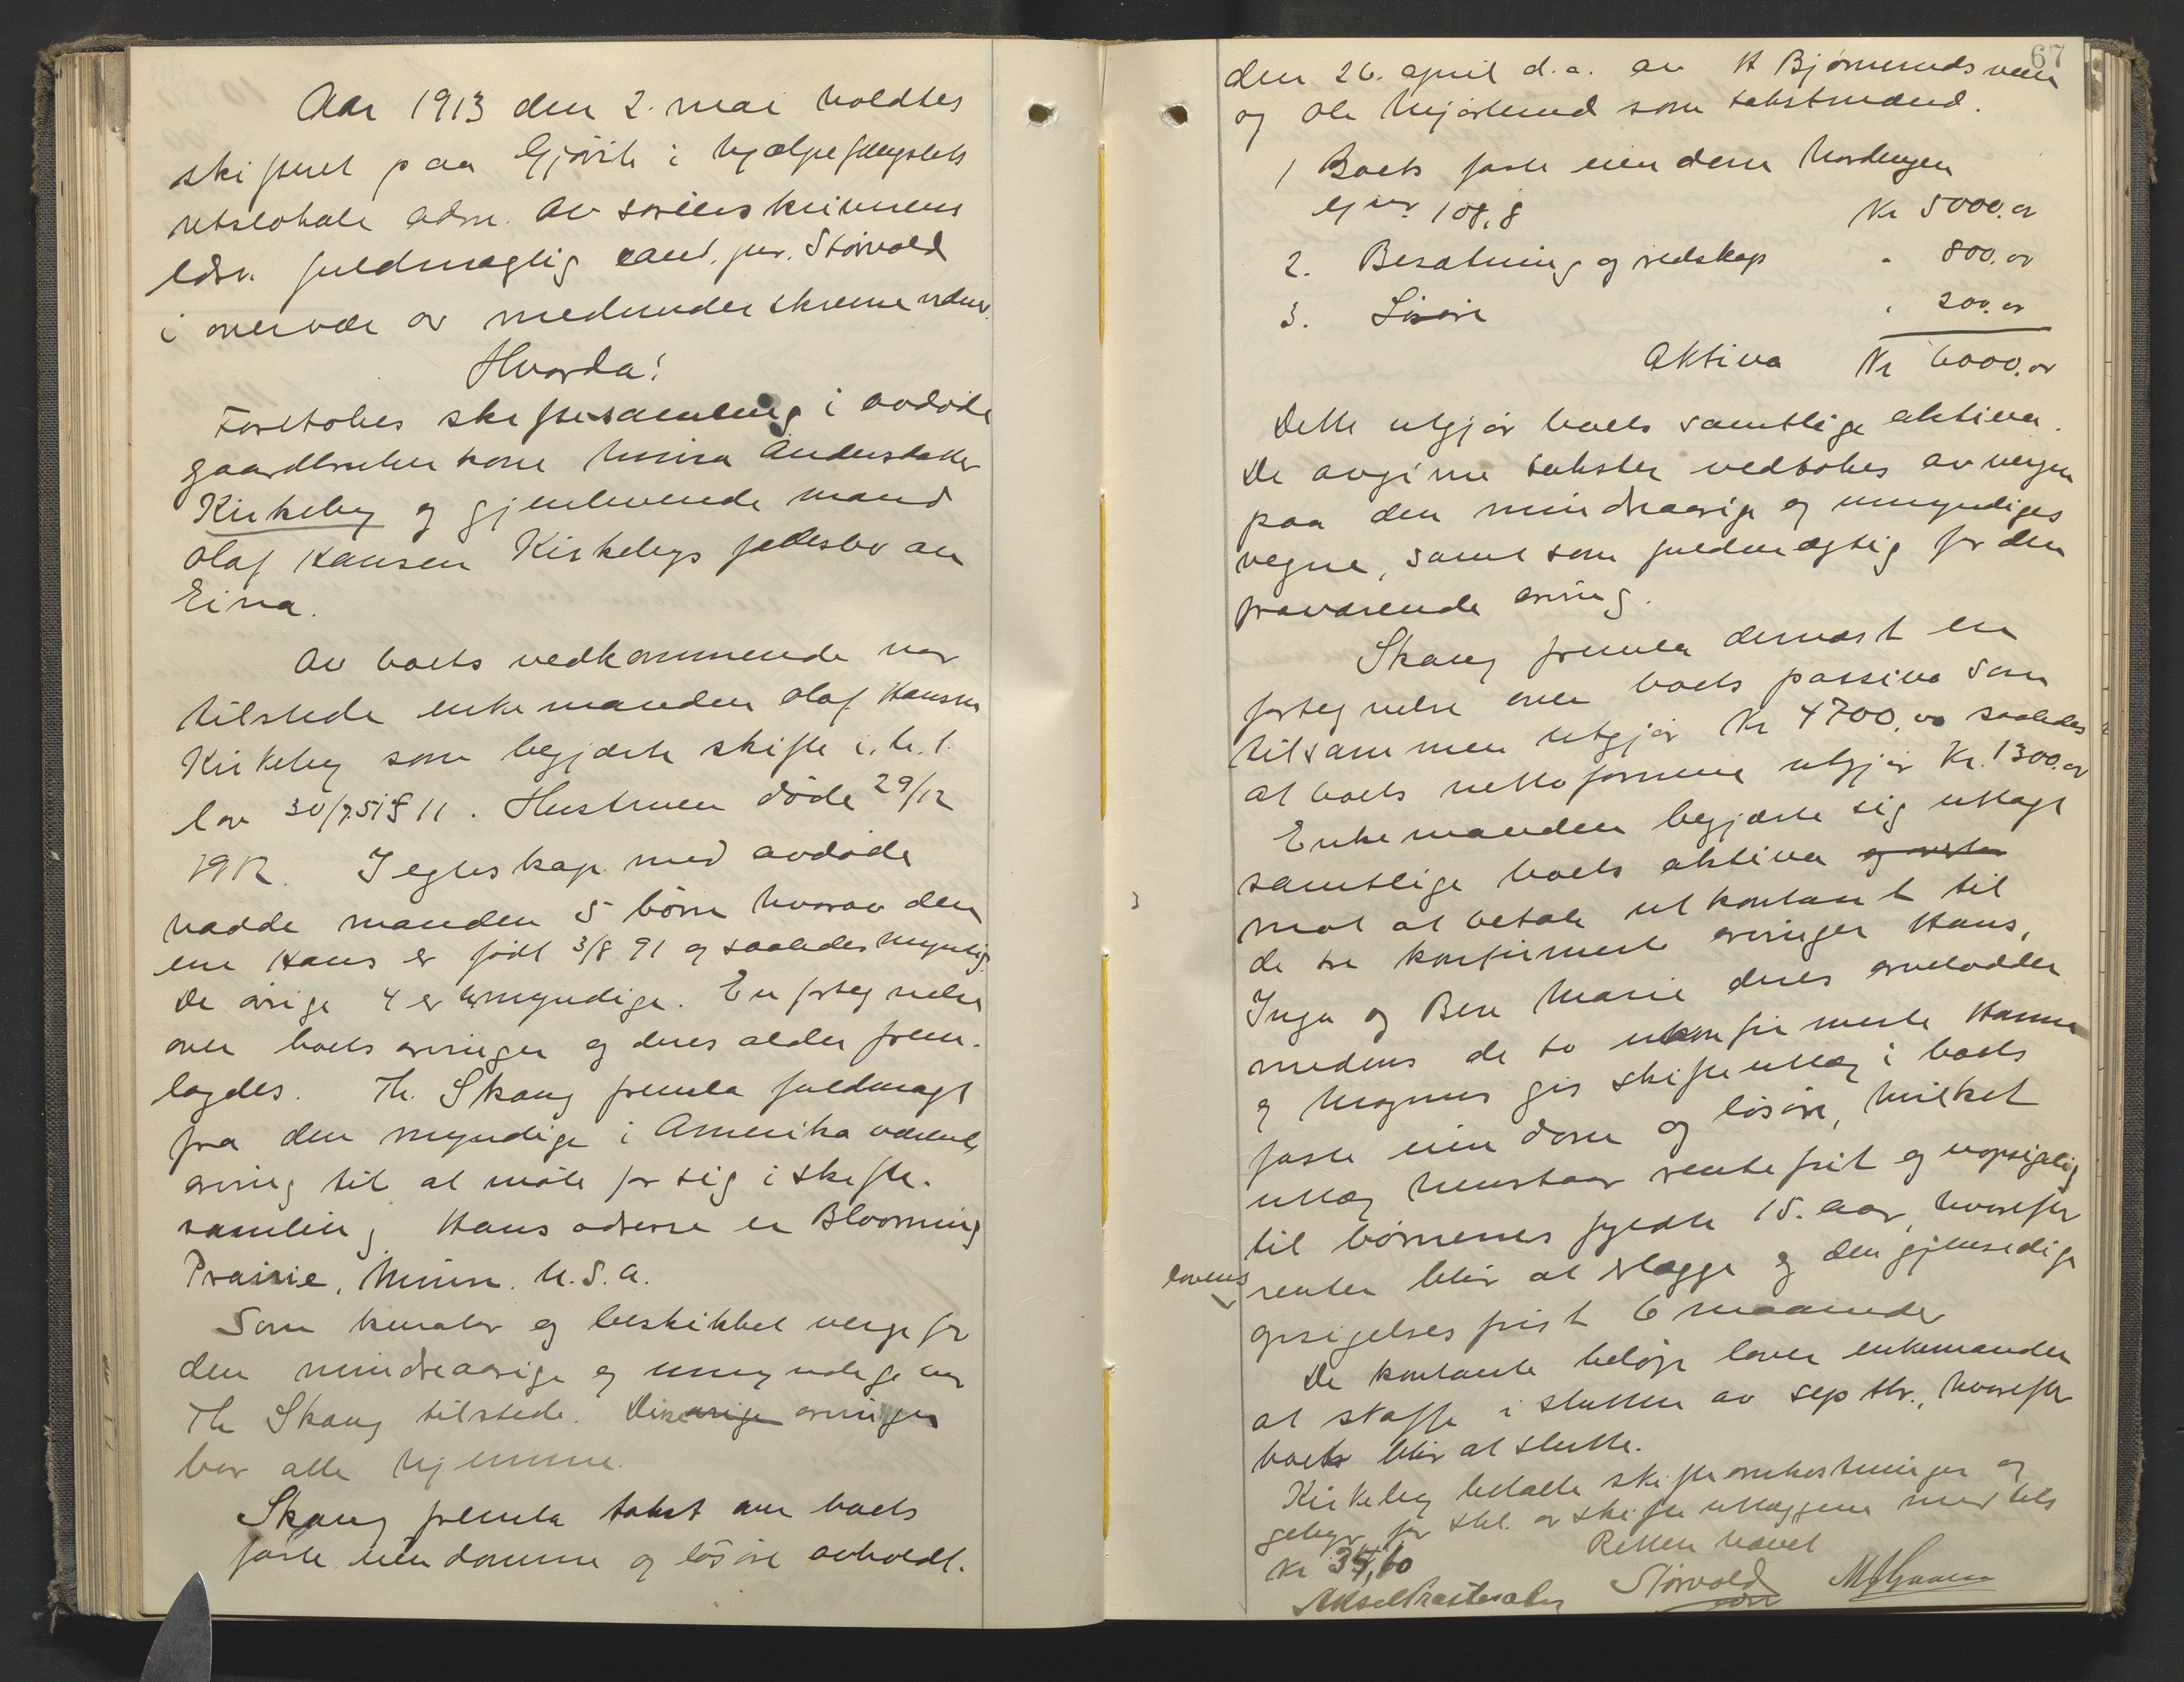 Aar 1913 den 2. mai holdtes
skifteret paa Gjøvik i hjælpefængslets
retslokale adm. av sorenskriverens
edsv. fuldmægtig cand. jur. Størvold
i overvær av medunderskrevne vidner.
Hvorda!
Foretokes skiftesamling i avdøde
gaardbruker kone Mina Andersdatter
Kirkeby og gjenlevende mand
Olaf Hansen Kirkebys fællesbo av
Eina.
Av boets vedkommende var
tilstede enkemanden Olaf Hansen
Kirkeby som begjærte skifte i. h. t.
lov 30/7 51 § 11. Hustruen døde 29/12
1912. I egteskap med avdøde
hadde manden 5 børn hvorav den
ene Hans er født 3/8 91 og saaledes myndig.
De øvrige 4 er umyndige. En fortegnelse
over boets arvinger og deres alder frem-
lagdes. Th. Skaug fremla fuldmagt
fra den myndige i Amerika værende
arving til at møte for sig i skifte-
samling. Hans adresse er Blooming
Prairie, Minn. U.S.A.
Som kurator og beskikket verge for
den mindreaarige og umyndige var
Th Skaug tilstede. Disse øvrige arvinger
bor alle hjemme.
Skaug fremla takst over boets
faste eiendomme og løsøre avholdt.
67
den 26. april d.a. av H Bjørnerudsveen
og Ole Mjørlund som takstmænd.
1 Boets faste eiendom Nordengen
G nr. 108,8 Kr 5000.00
2. Besætning og redskap " 800.00
3. Løsøre " 200.00
Aktiva Kr 6000.00
Dette utgjør boets samtlige aktiva.
De avgivne takster vedtokes av vergen
paa den mindreaarige og umyndiges
vegne, samt som fuldmægtig for den
fraværende arving.
Skaug fremla dernæst en
fortegnelse over boets passiva som
tilsammen utgjør Kr 4700.00 saaledes
at boets nettoformue utgjør Kr. 1300.00
Enkemanden begjærte sig utlagt
samtlige boets aktiva og
mot at betale ut kontant til
de tre konfirmerte arvinger Hans,
Inga og Bera Marie deres arvelodder
medens de to ukonfirmerte Hanna
og Magnus gis skifteutlæg i boets
faste eiendom og løsøre, hvilket
utlæg henstaar rentefrit og uopsigelig
til børnenes fyldte 15. aar, hvorefter
lovens renter blir at erlægge og den gjensidige
opsigelses frist 6 maaneder
De kontante beløp lover enkemanden
at skaffe i slutten av septbr., hvorefter
boet blir at slutte.
Kirkeby betalte skifteomkostninger og
gebyr for skl. av skifteutlæggene med tils
Kr 34,60 Retten hævet
Størvold